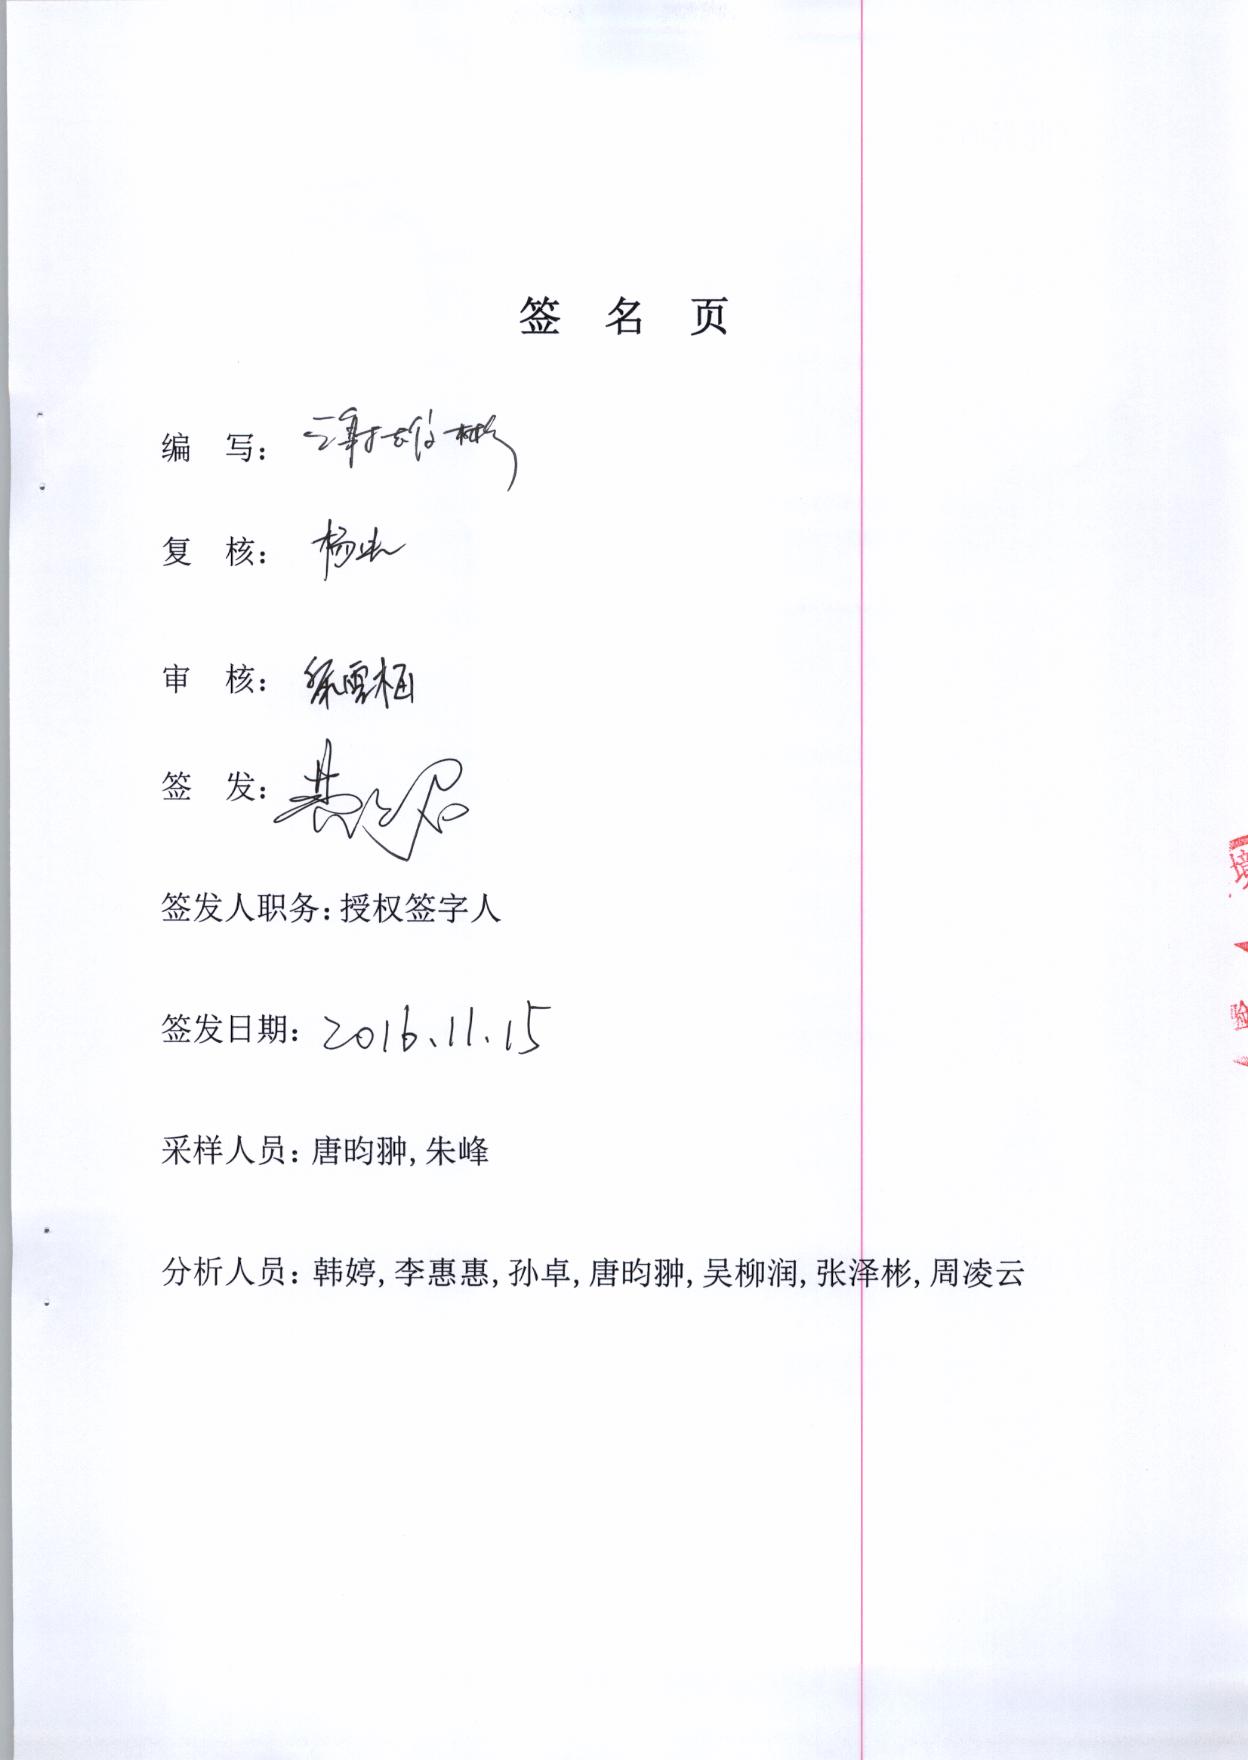 签 名 页
编 写: 谢雄彬
复 核: 杨
审 核: 徐雪梅
签 发:
签发人职务:授权签字人
签发日期: 2016.11.15
采样人员: 唐昀翀, 朱峰
分析人员: 韩婷, 李惠惠, 孙卓, 唐昀翀, 吴柳润, 张泽彬, 周凌云
境
验